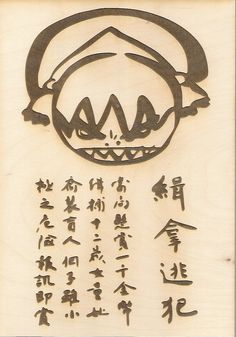 緝拿逃犯
當局懸賞一千金幣
緝捕十二歲女童此
喬裝盲人個子雖小
極之危險報訊即賞